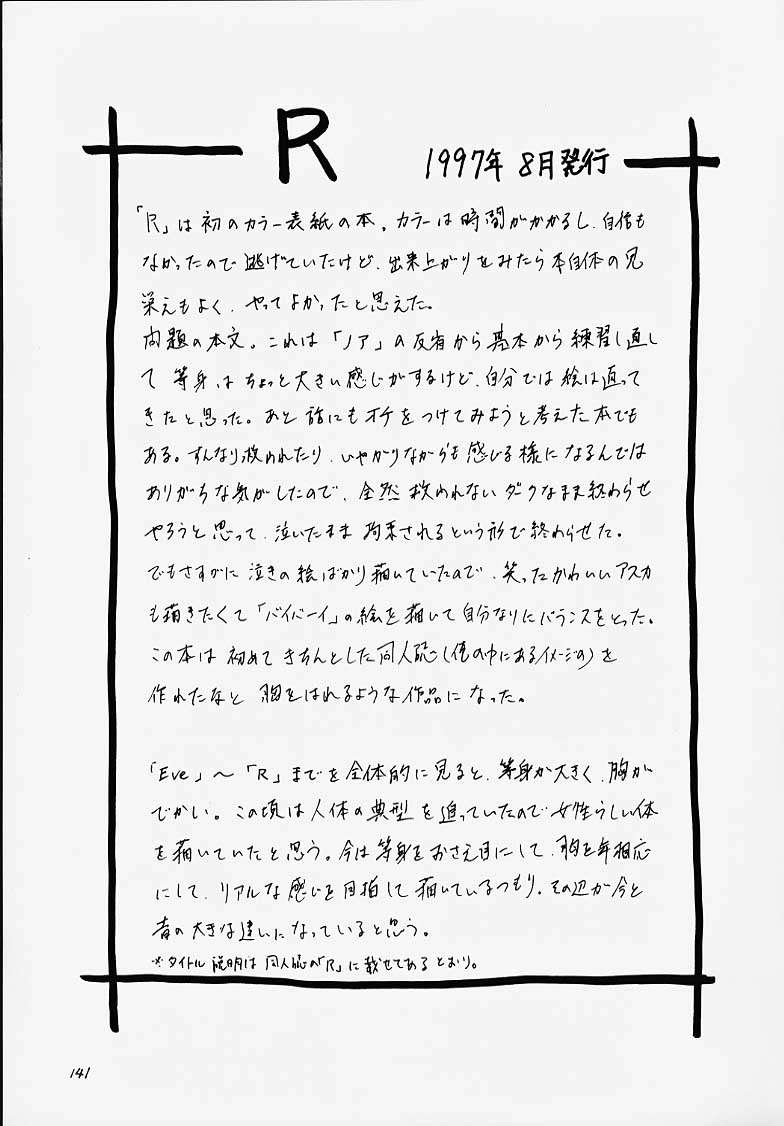 R
1997年 8月発行
「R」は初のカラー表紙の本。カラーは時間がかかるし、自信も
なかったので逃げていたけど、出来上がりをみたら本自体の見
栄えもよく、やってよかったと思えた。
問題の本文。これは「ノア」の反省から基本から練習し直し
て 等身はちょっと大きい感じがするけど、自分では絵は直って
きたと思った。あと話にもオチをつけてみようと考えた本でも
ある。すんなり救われたり、いやがりながらも感じる様になるんでは
ありがちな気がしたので、全然救われないダークなまま終わらせ
やろうと思って、泣いたまま拘束されるという形で終わらせた。
でもさすがに泣きの絵ばかり描いていたので、笑ったかわいいアスカ
も描きたくて「バイバーイ」の絵を描いて自分なりにバランスをとった。
この本は初めてきちんとした同人誌(俺の中にあるイメージの)を
作れたなと 胸をはれるような作品になった。
「Eve」〜「R」までを全体的に見ると、等身が大きく、胸が
でかい。この頃は人体の典型を追っていたので女性らしい体
を描いていたと思う。今は等身をおさえ目にして、胸を年相応
にして、リアルな感じを目指して描いているつもり。その辺が今と
昔の大きな違いになっていると思う。
※タイトル説明は同人誌の「R」に載せてあるとおり。
141